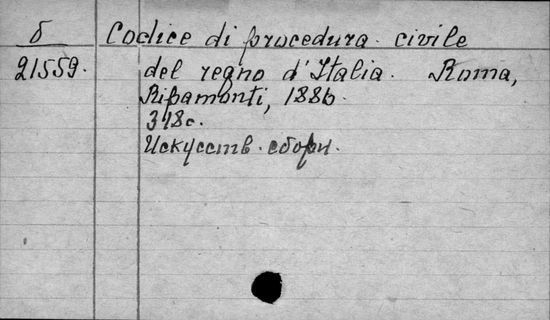 б
21559.
Codice di procedura civile
del regno d'Italia. Roma,
Ripamonti, 1886.
318с.
Искусств. сборн.